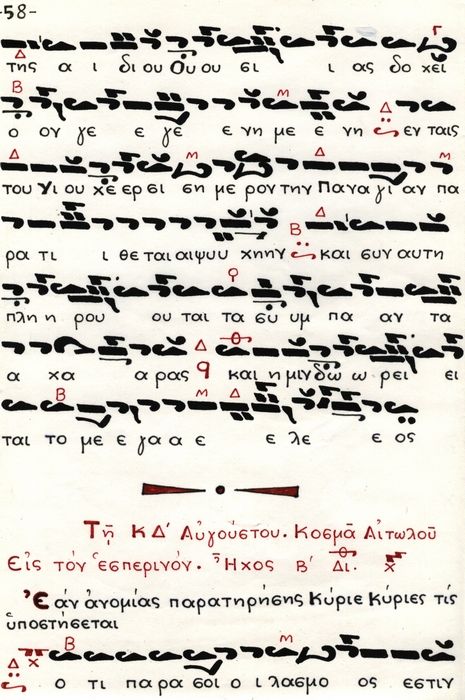 -58-
της α ι δι ου Ου ου σι ι ας δο χεί
ο ον γε ε γέ ε νη με ε νη εν ταις
του Υι ου χε ερ σι ση με ρον την Πανα γι αν πα
ρα τι ι θε ται αι ψυυ χηην και συν αυτη
πλη η ρου ου ται τα συ υμ πα αν τα
α χα α ρας και η μιν δω ω ρει ει
ται το με ε γα α ε ε λε ε ος
Τῇ ΚΔ΄ Αὐγούστου. Κοσμᾶ Αἰτωλοῦ
Εἰς τόν ἑσπερινόν. Ἦχος Β΄ Δι.
Ἐάν ἀνομίας παρατηρήσης Κύριε Κύριε τίς
ὑποστήσεται
ο τι παρα σοι ο ι λασμο ος εστιν